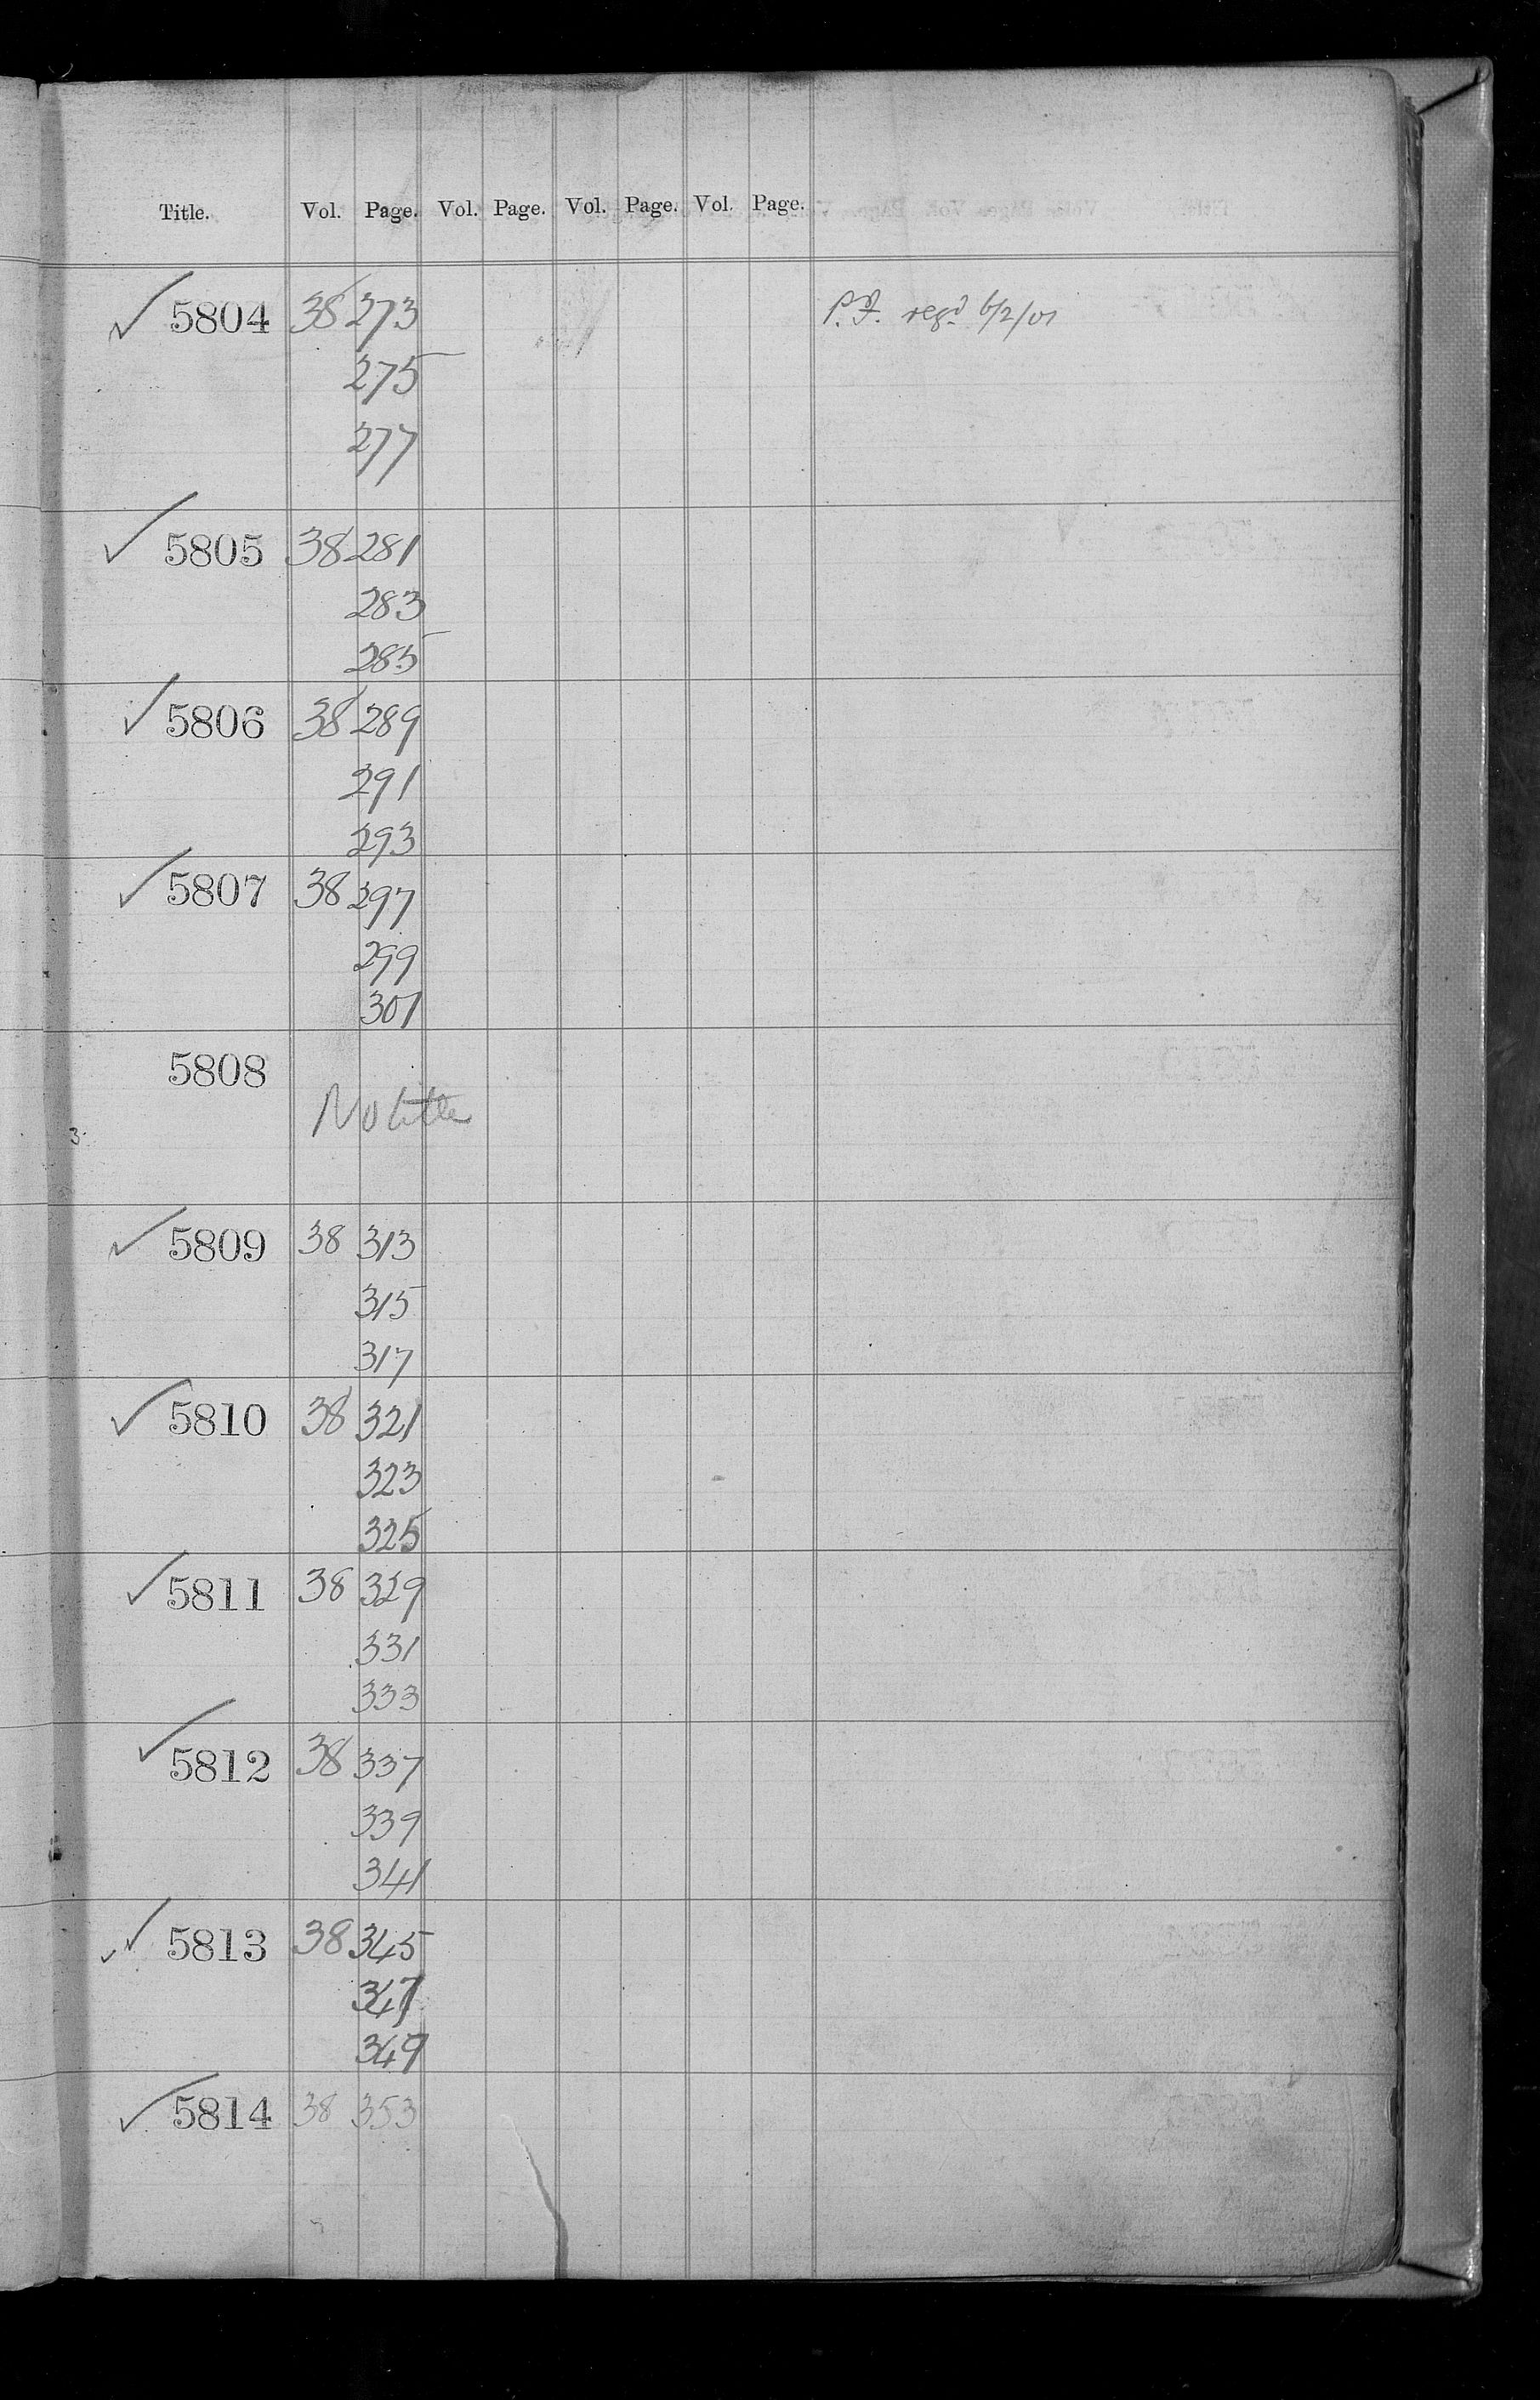 Title. Vol. Page. Vol. Page. Vol. Page. Vol. Page.
✓ 5804 38 273 P.F. regd 6/2/01
275
277
✓ 5805 38 281
283
285
✓ 5806 38 289
291
293
✓ 5807 38 297
299
301
5808
No title
3
✓ 5809 38 313
315
317
✓ 5810 38 321
323
325
✓ 5811 38 329
331
333
✓ 5812 38 337
339
341
✓✓ 5813 38 345
347
349
✓ 5814 38 353